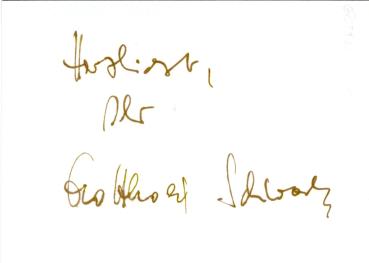 Herzlichst,
Ihr
Gotthart Schwarz